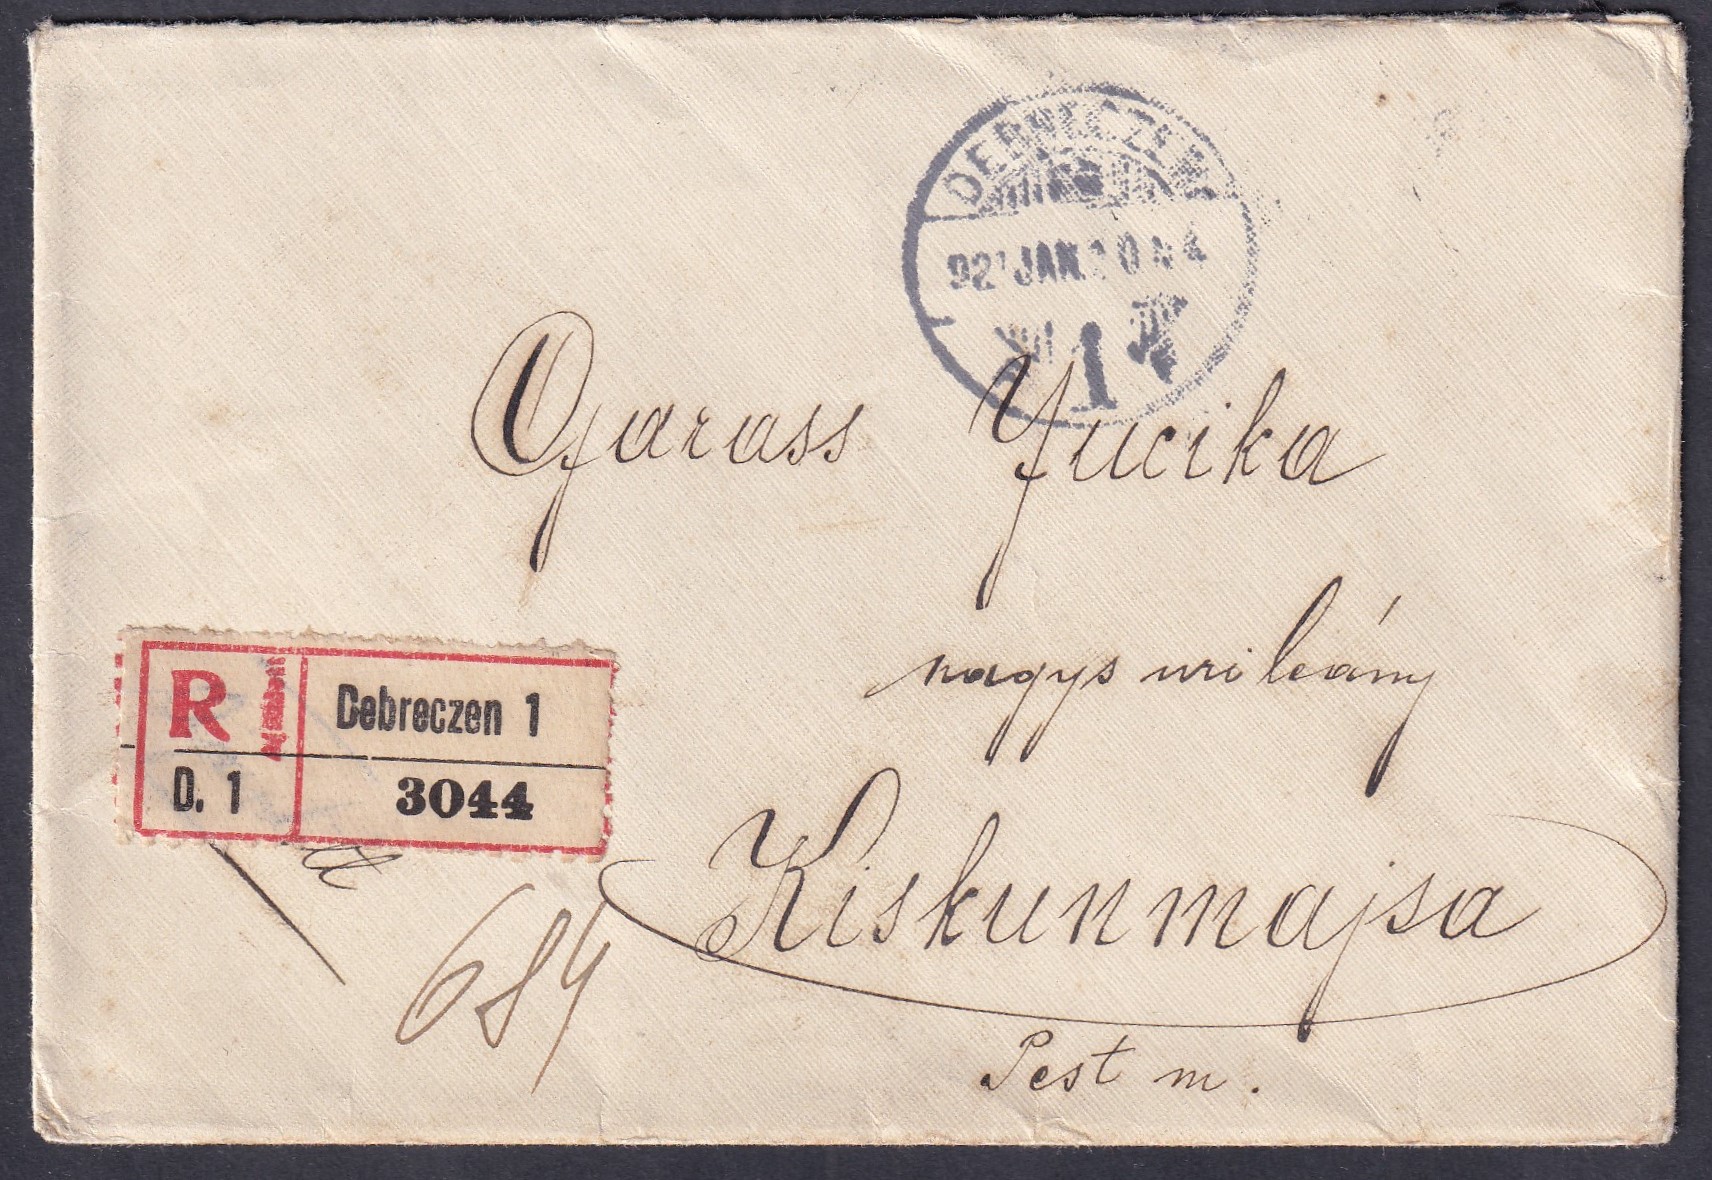 DEBRECZEN
921 JAN. 10 N 4
1
Garass Jucika
nagys urileány
R Debreczen 1
D. 1 3044
Kiskunmajsa
684
Pest m.